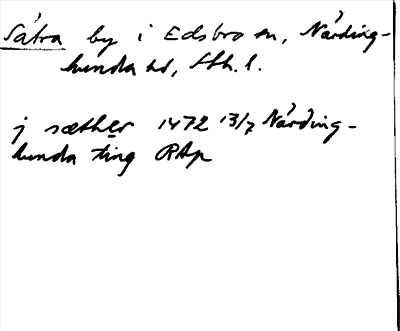 Sätra by i Edsbro sn, Närding-
hunda hd, Sth. l.
j sæther 1472 13/7 Närding-
hunda ting RAp